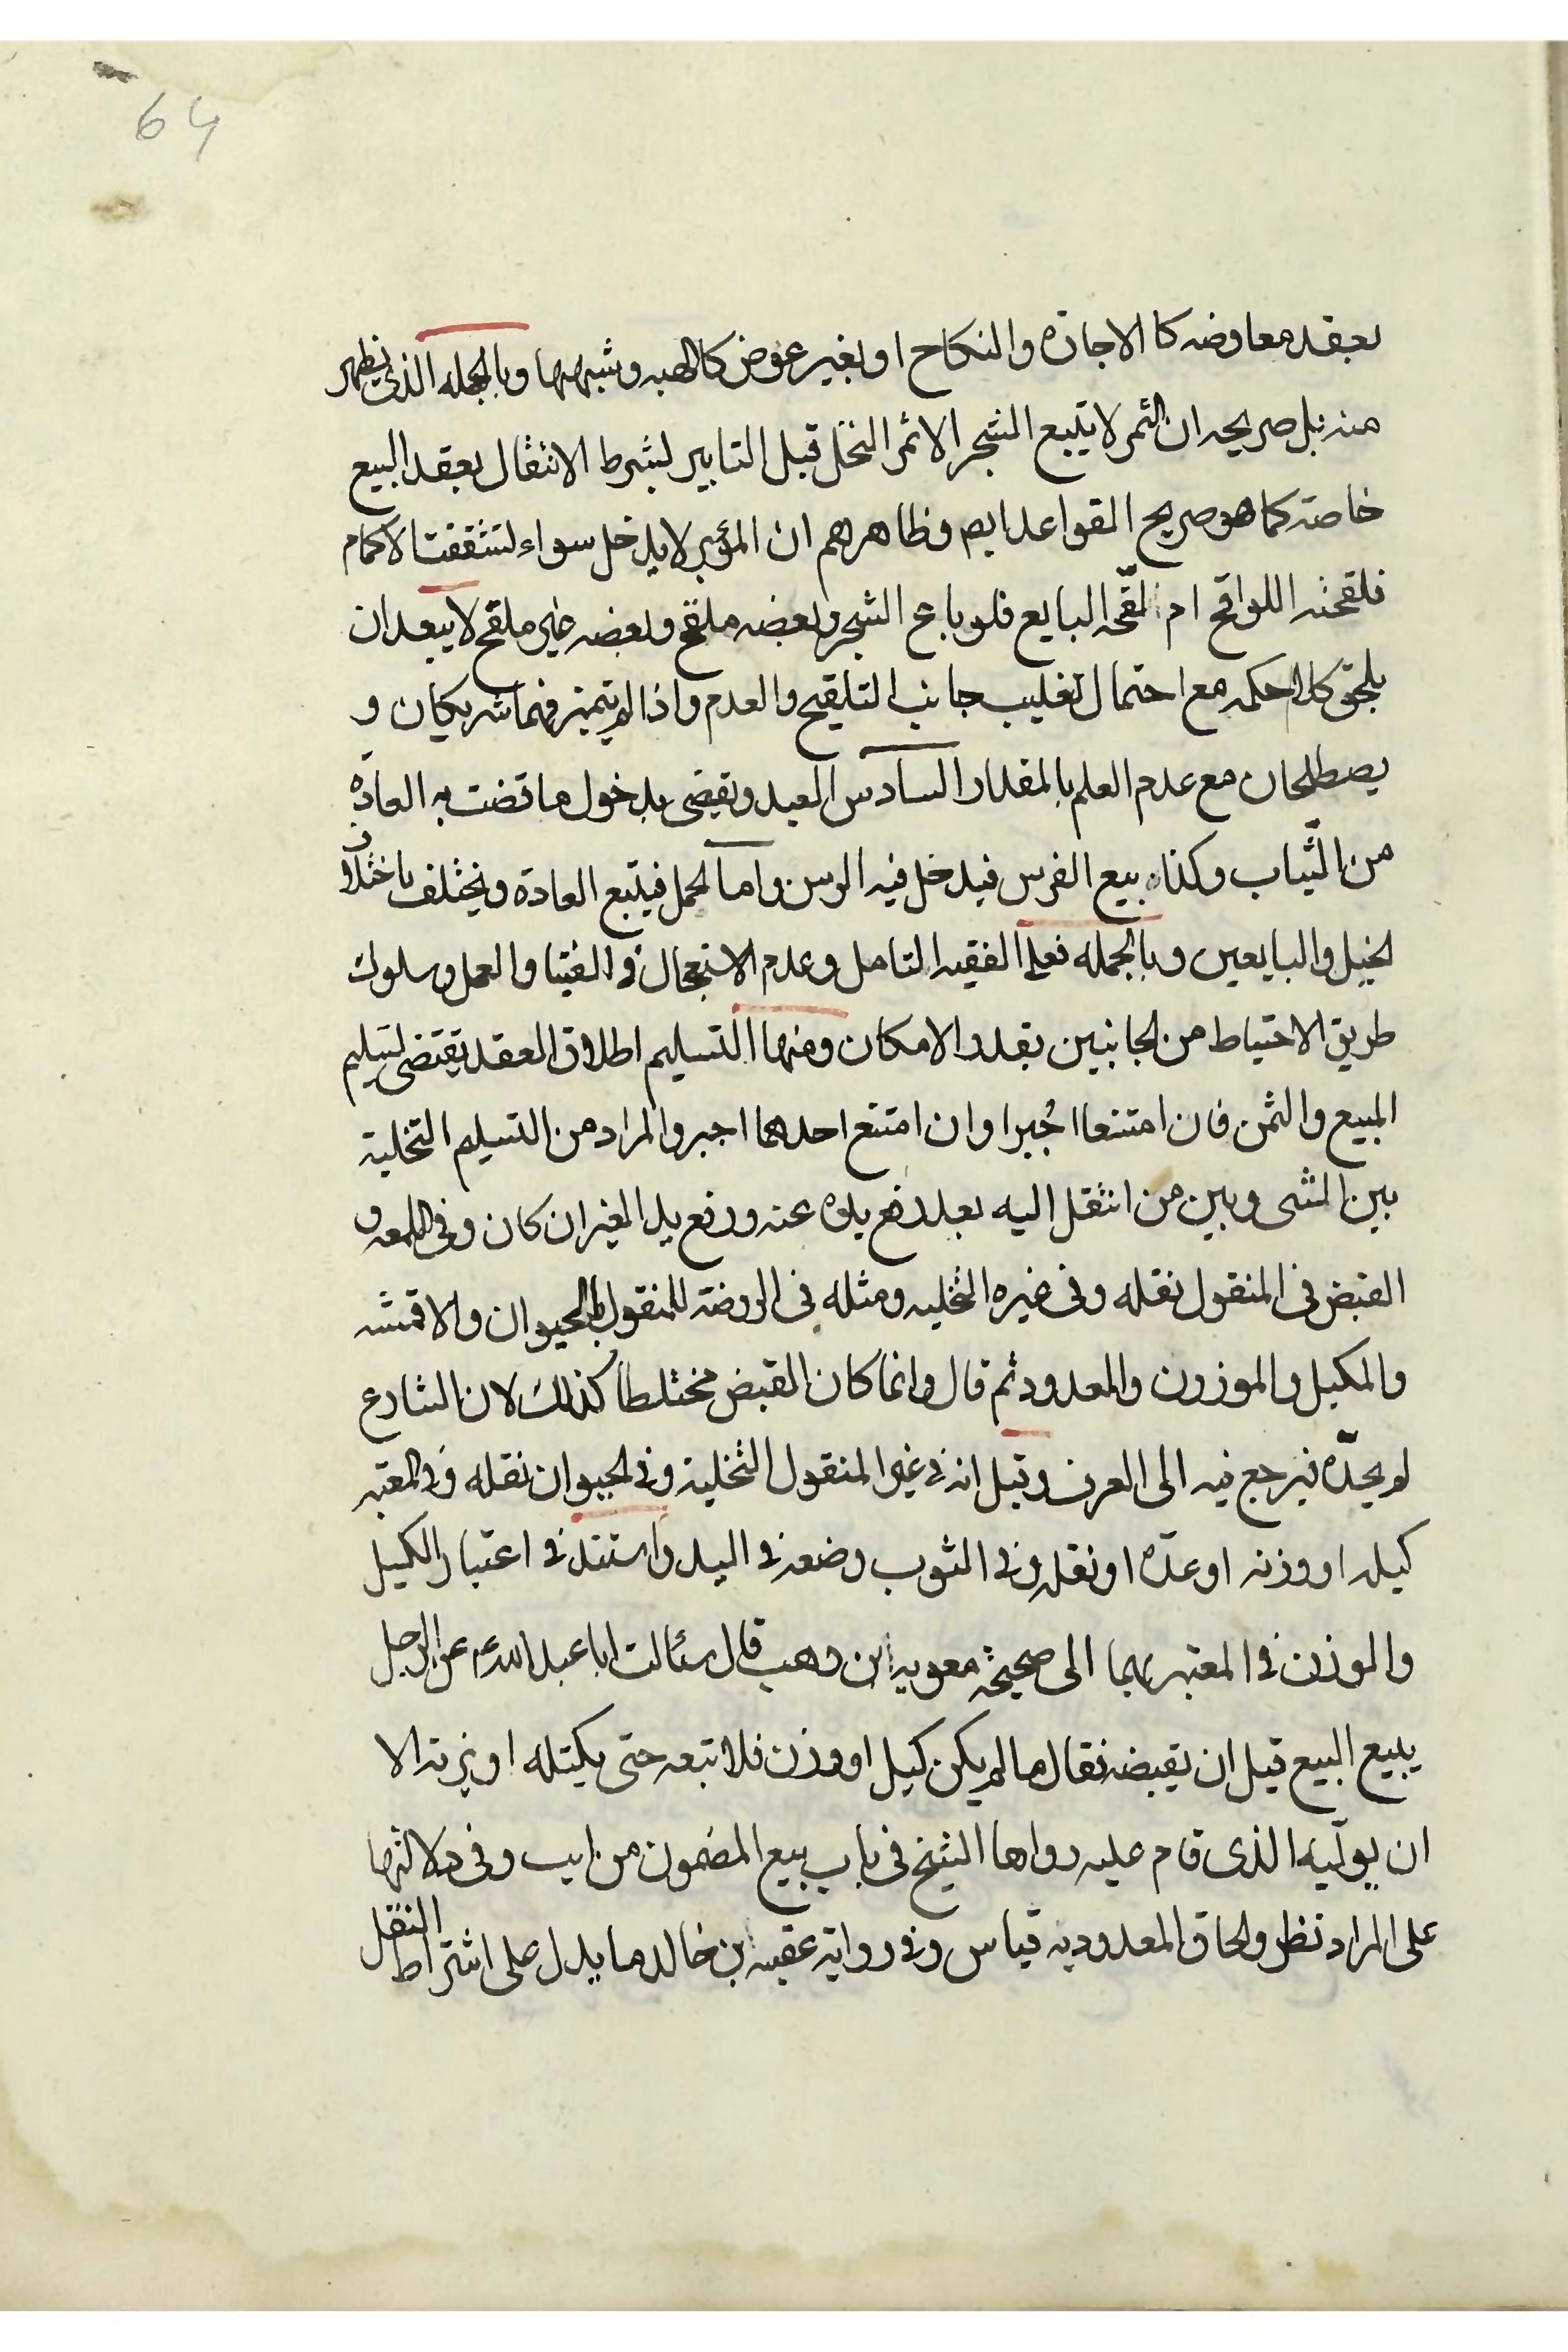 64
بعقد معاوضه كا الاجازه والنكاح او بغير عوض كالهبه وشبهها وبالجمله الذى يظهر
منه بل صريحه ان الثمر لا يتبع الشجر الا ثمر النخل قبل التابير لشرط الانتقال بعقد البيع
خاصته كما هو صريح القواعد ايض وظاهرهم ان المؤبر لا يدخل سواء تشققت الاكمام
فلقحته اللواقح ام لقّحه البايع فلو باع الشجر وبعضه ملقح وبعضه غير ملقح لا يبعد ان
يلحق كلا حكمه مع احتمال تغليب جانب التلقيح والعدم واذا لم يتميز فهما شريكان و
يصطلحان مع عدم العلم بالمقدار السادس العبد ويقضى بدخول ما قضت به العادة
من الثياب وكذا بيع الفرس فيدخل فيه الرسن واما الحمل فيتبع العادة ويختلف باختلاف
الخيل والبايعين وبالجمله فعلى الفقيه التامل وعدم الاستعجال فى الفتيا والعمل وسلوك
طريق الاحتياط من الجانبين بقدر الامكان ومنها التسليم اطلاق العقد يقتضى تسليم
المبيع والثمن فان امتنعا اجُبرا وان امتنع احدهما اجبر والمراد من التسليم التخلية
بين المشى وبين من انتقل اليه بعد رفع يده عنه ورفع يد الغير ان كان وفى اللمعه و
القبض فى المنقول نقله وفى غيره التخليه ومثله فى الروضة للمنقول بالحيوان والاقمشه
والمكيل والموزون والمعدود ثم قال وانما كان القبض مختلطا كذلك لان الشارع
لم يحدّه فيرجع فيه الى العرف وقيل انه فى غير المنقول التخلية وفى الحيوان نقله وفى المعتبر
كيله او وزنه او عدّه او نقله وفى الثوب وضعه فى اليد واستند فى اعتبار الكيل
والوزن فى المعتبر بهما الى صحيحة معويه ابن وهب قال سئالت ابا عبد الله ع عن الرجل
يبيع البيع قبل ان يقبضه فقال ما لم يكن كيل او وزن فلا تبعه حتى يكتله او يزنه الا
ان يولّيه الذى قام عليه رواها الشيخ فى باب بيع المضمون من يب وفى دلالتها
على المراد نظر والحاق المعدود به قياس وفى رواية عقبه ابن خالد ما يدل على اشتراط النقل